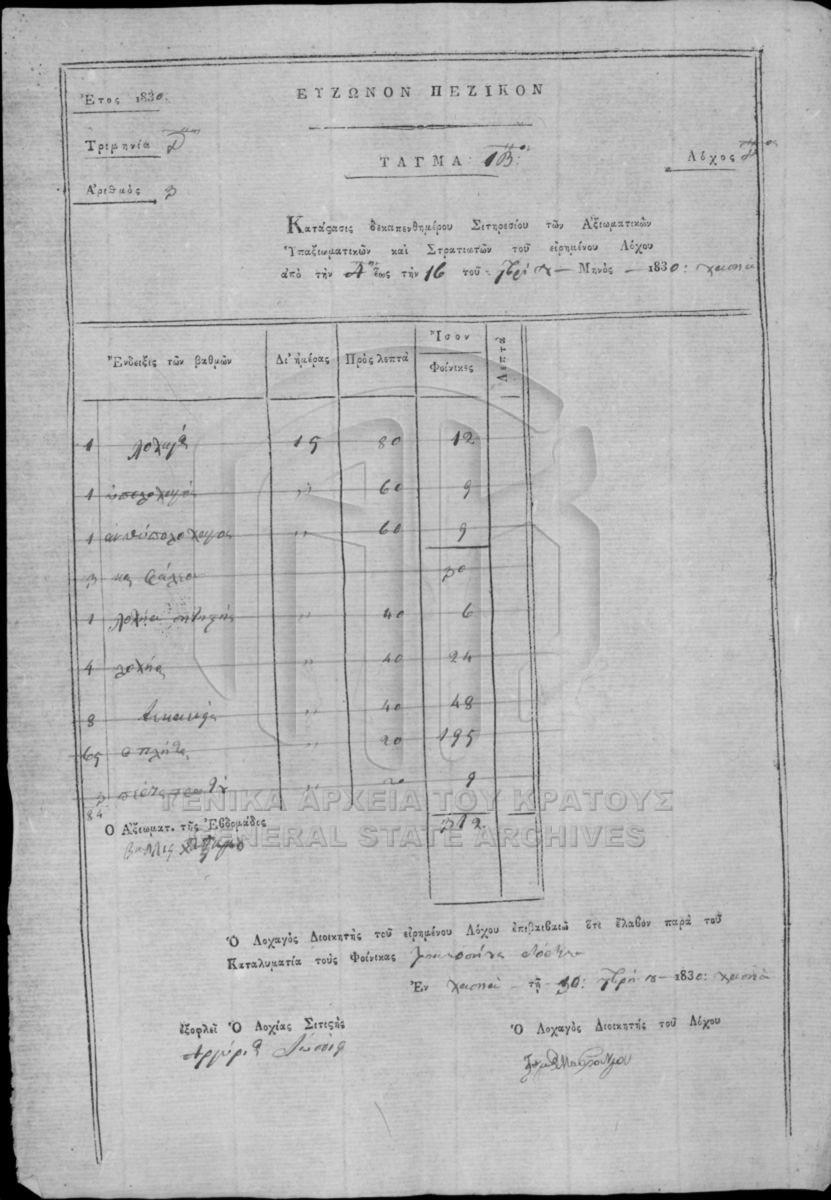 Ἔτος 1830:
ΕΥΖΩΝΟΝ ΠΕΖΙΚΟΝ
Τριμηνία Δ
ΤΑΓΜΑ: 1Β:
Λόχος
Ἀριθμὸς
Κατάςασις δεκαπενθημέρου Σιτηρεσίου τῶν Ἀξιωματικῶν
Ὑπαξιωματικῶν καὶ Στρατιωτῶν τοῦ εἰρημένου Λόχου
ἀπὸ τὴν Αην ἕως τὴν 16 τοῦ Μηνὸς 1830:
Ἔνδειξις τῶν βαθμῶν Δι' ἡμέρας Πρὸς λεπτὰ Ἴσον
Φοίνικες Λεπτὰ
1 λοχαγὸς 15 80 12
1 ὑπολοχαγὸς ,, 60 9
1 ἀνθυπολοχαγος ,, 60 9
30
1 ,, 40 6
4 λοχίας ,, 40 24
8 ,, 40 48
65 οπλῆται ,, 20 195
3 ,, 20 9
84 312
Ο Ἀξιωματ. τῆς Ἑβδομάδες
Ὁ Λοχαγὸς Διοικητὴς τοῦ εἰρημένου Λόχου ἐπιβαιβαιῶ ὅτι ἔλαβον παρὰ τοῦ
Καταλυματία τοὺς Φοίνικας
Ἐν τῇ 30 1830:
ἐξοφλεῖ Ὁ Λοχίας Σιτιςὴς
Ὁ Λοχαγὸς Διοικητὴς τοῦ Λόχου
ΓΕΝΙΚΑ ΑΡΧΕΙΑ ΤΟΥ ΚΡΑΤΟΥΣ
GENERAL STATE ARCHIVES